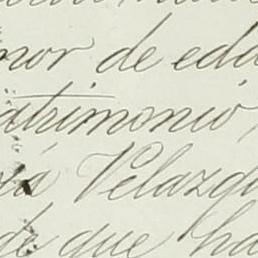 nor de eda
atrimonio,
Velazqu
de que ha